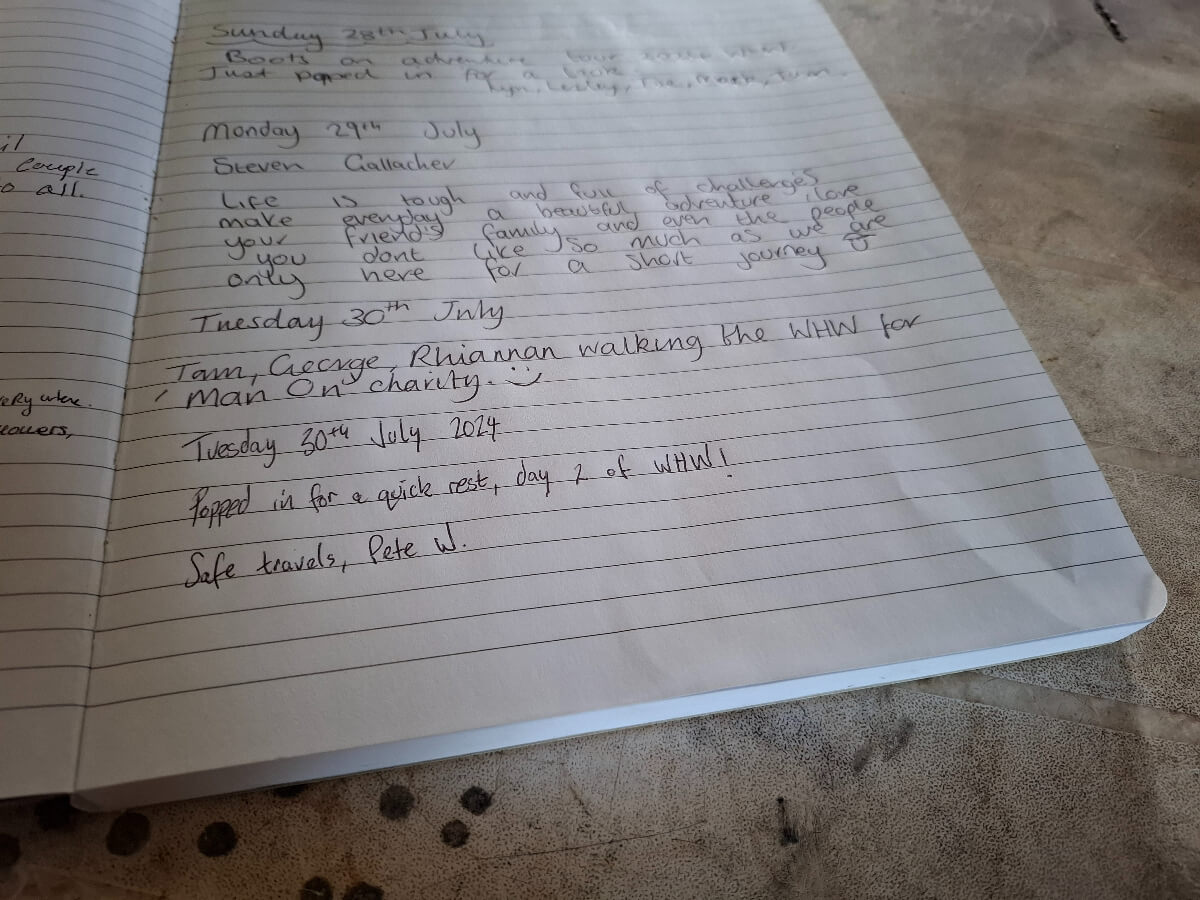 il
Couple
o all.
ery where.
Sunday 28th July
Boots on adventure tour
Just popped in for a look
Lesley,
Monday 29th July
Steven Gallacher
Life is tough and full of challenges
make everyday a beautiful adventure, love
your friend's family and even the people
you dont like so much as we are
only here for a short journey
Tuesday 30th July
Tam, George, Rhiannan walking the WHW for
Man On charity. :)
Tuesday 30th July 2024
Popped in for a quick rest, day 2 of WHW!
Safe travels, Pete W.